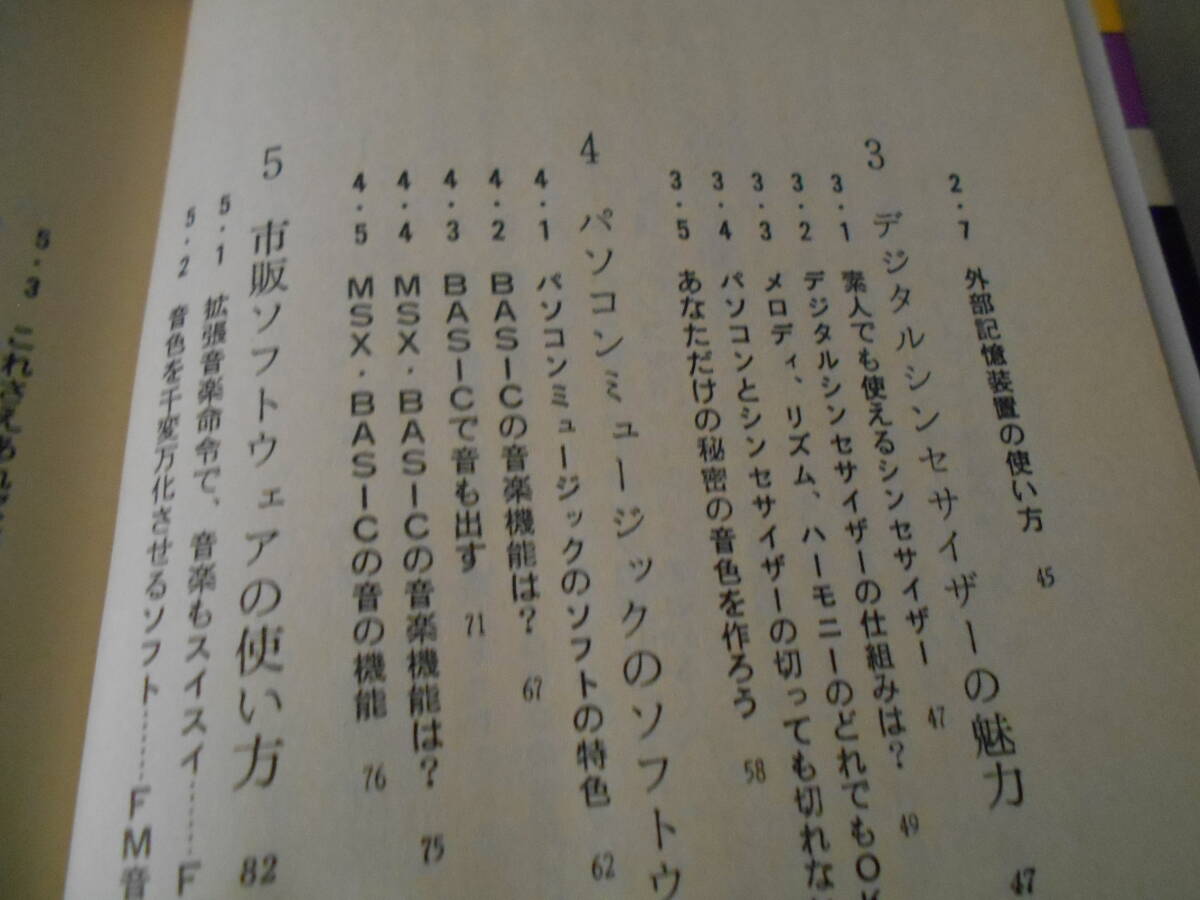 2・7 外部記憶装置の使い方 45
3 デジタルシンセサイザーの魅力 47
3・1 素人でも使えるシンセサイザー 47
3・2 デジタルシンセサイザーの仕組みは? 49
3・3 メロディ、リズム、ハーモニーのどれでもOK
3・4 パソコンとシンセサイザーの切っても切れな
3・5 あなただけの秘密の音色を作ろう 58
4 パソコンミュージックのソフトウ
4・1 パソコンミュージックのソフトの特色 62
4・2 BASICの音楽機能は? 67
4・3 BASICで音も出す 71
4・4 MSX・BASICの音楽機能は? 75
4・5 MSX・BASICの音の機能 76
5 市販ソフトウェアの使い方 82
5・1 拡張音楽命令で、音楽もスイスイ………F
5・2 音色を千変万化させるソフト………FM音
5・3 これさえあれば